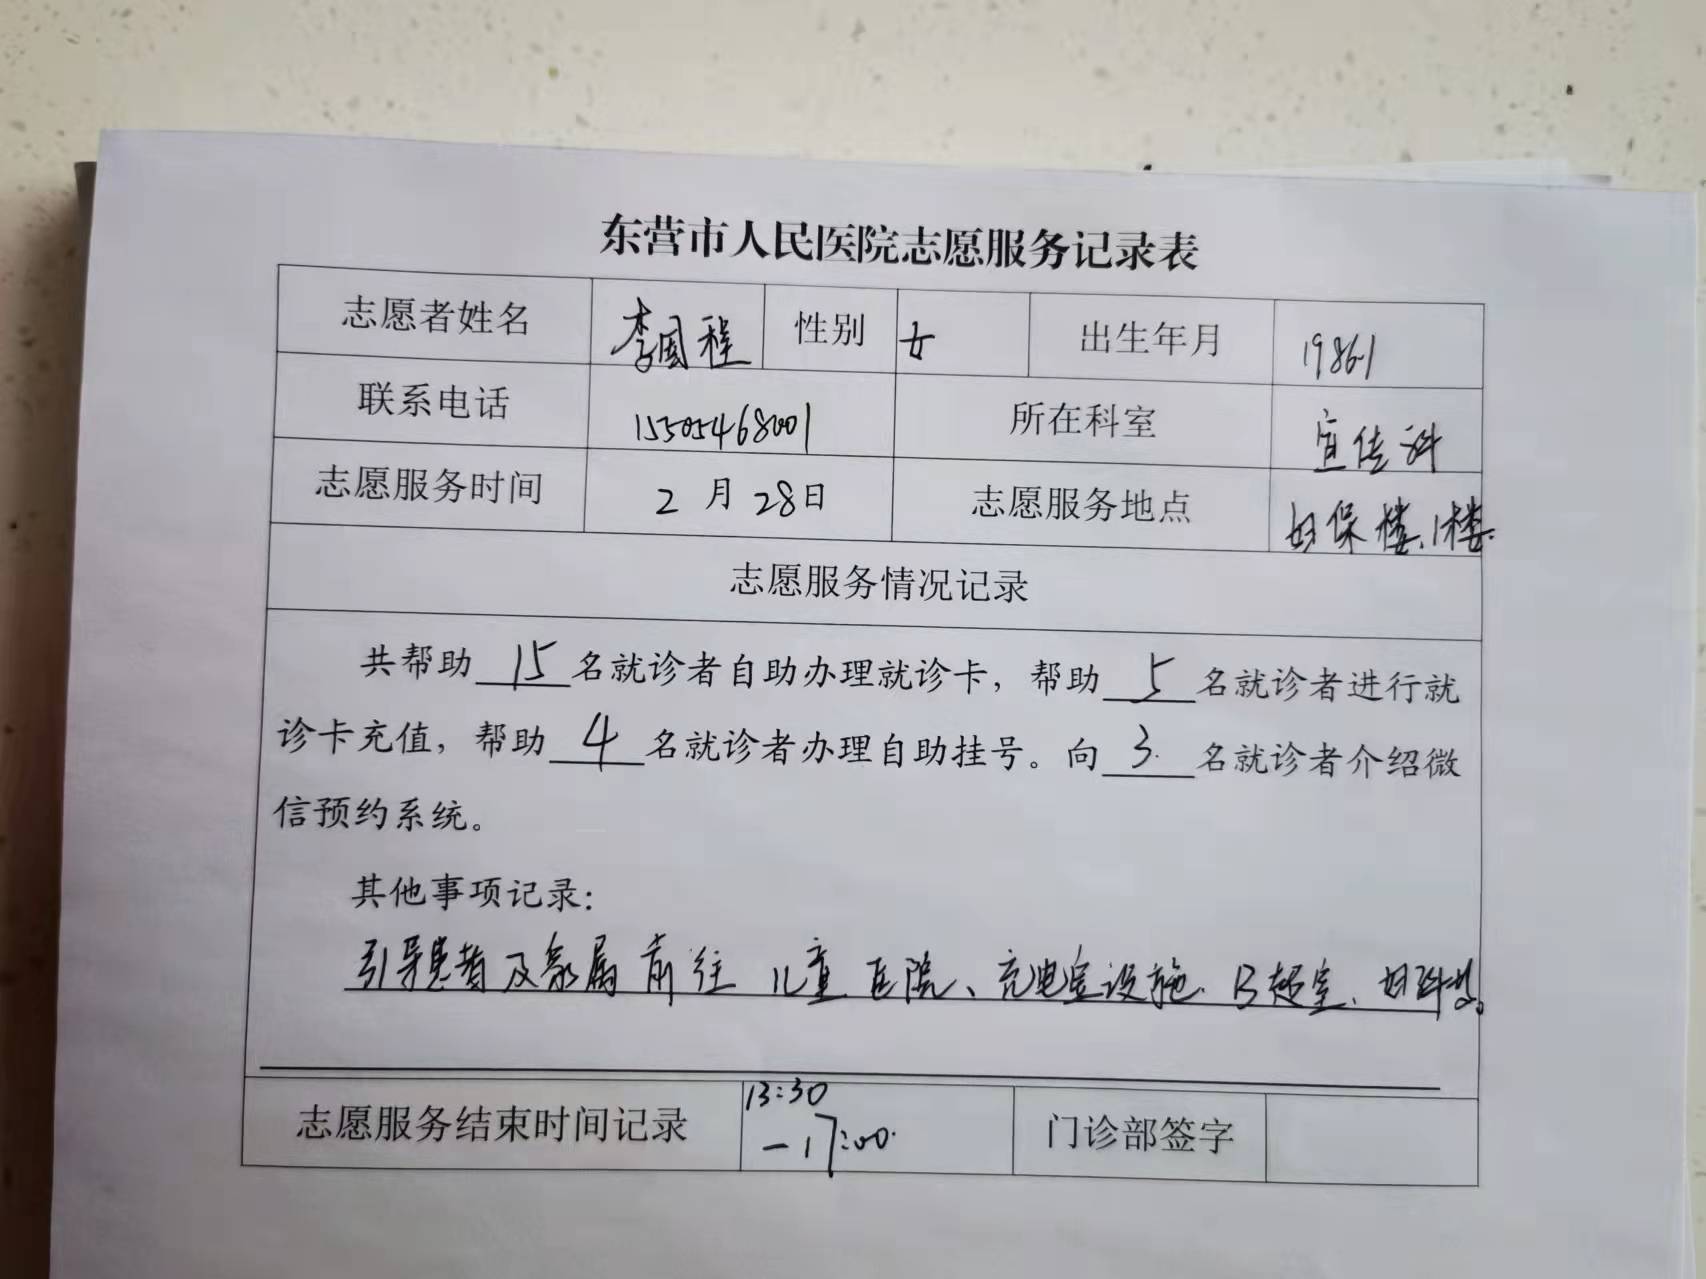 东营市人民医院志愿服务记录表
志愿者姓名 李国程 性别 女 出生年月 1986.1
联系电话 15505468001 所在科室 宣传科
志愿服务时间 2月28日 志愿服务地点 妇保楼、1楼.
志愿服务情况记录
共帮助 15 名就诊者自助办理就诊卡，帮助 5 名就诊者进行就
诊卡充值，帮助 4 名就诊者办理自助挂号。向 3 名就诊者介绍微
信预约系统。
其他事项记录：
引导患者及家属前往儿童医院、充电宝设施. B超室、妇科等。
13:30
志愿服务结束时间记录 －17:00. 门诊部签字